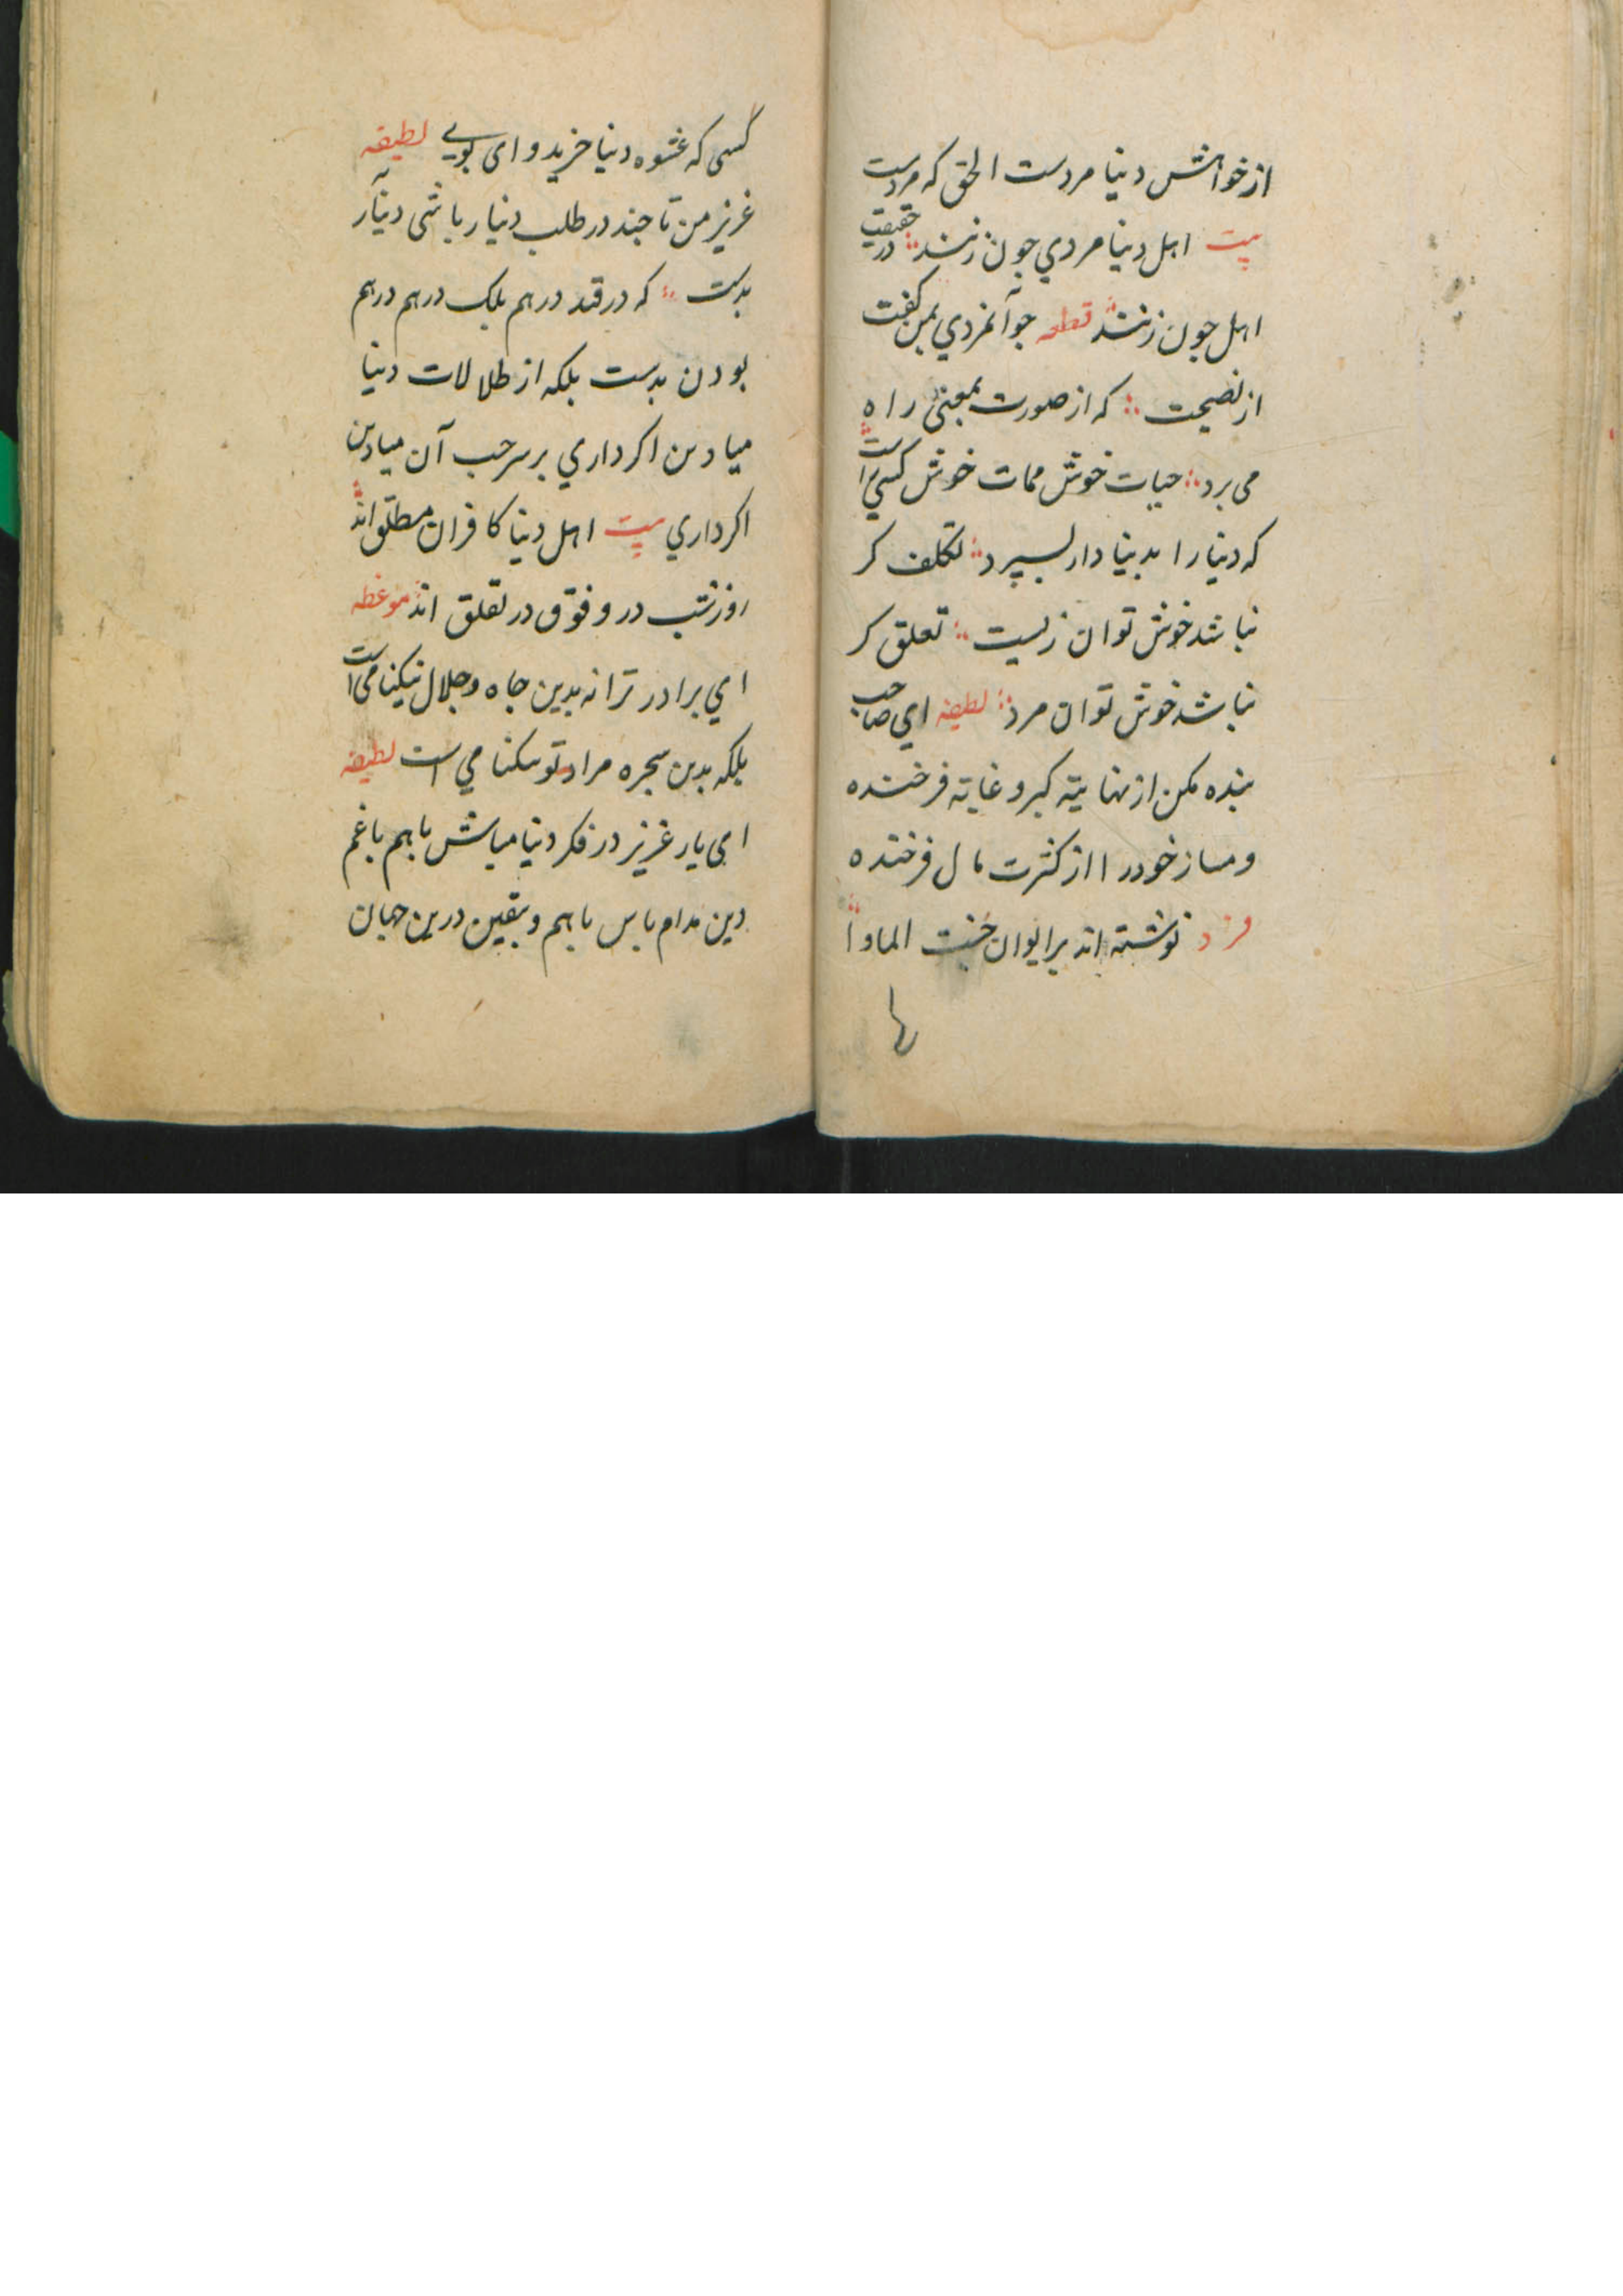 از خواهش دنیا مردست الحق که مردست
بیت اهل دنیا مردي چون زنند در حقیقت
اهل چون زنند قطعه جوآنمردي بمن کفت
از نصیحت که از صورت بمعنی راه
می برد حیات خوش ممات خوش کسي است
که دنیا را بدنیا دار بسپرد تکلف کر
نباشد خوش توان زیست تعلق کر
نباشد خوش توان مرد لطیفه اي صاحب
بنده مکن از نهایته کبر و غایته فرخنده
و مساز خود را از کثرت مال فرخنده
فرد نوشته اند بر ایوان جنت الماوا
کسی که عشوه دنیا خرید وای بویے لطیفه
عزیز من تا چند در طلب دنیا رباشی دینآر
بدست که در قند درهم بلک درهم درهم
بودن بدست بلکه از طلالات دنیا
میادین اکر داري بر سر حب آن میادین
اکر داري بیت اهل دنیا کافران مطلق اند
روز شب در و فوق در تقلق اند موعظه
اي برادر ترا نه بدین جاه و جلال نیکنامی است
بلکه بدین مراد تو است لطیفه
ای یار عزیز در فکر دنیا میاش باهم با غم
دین مدام باش باهم و یقین درین جهان